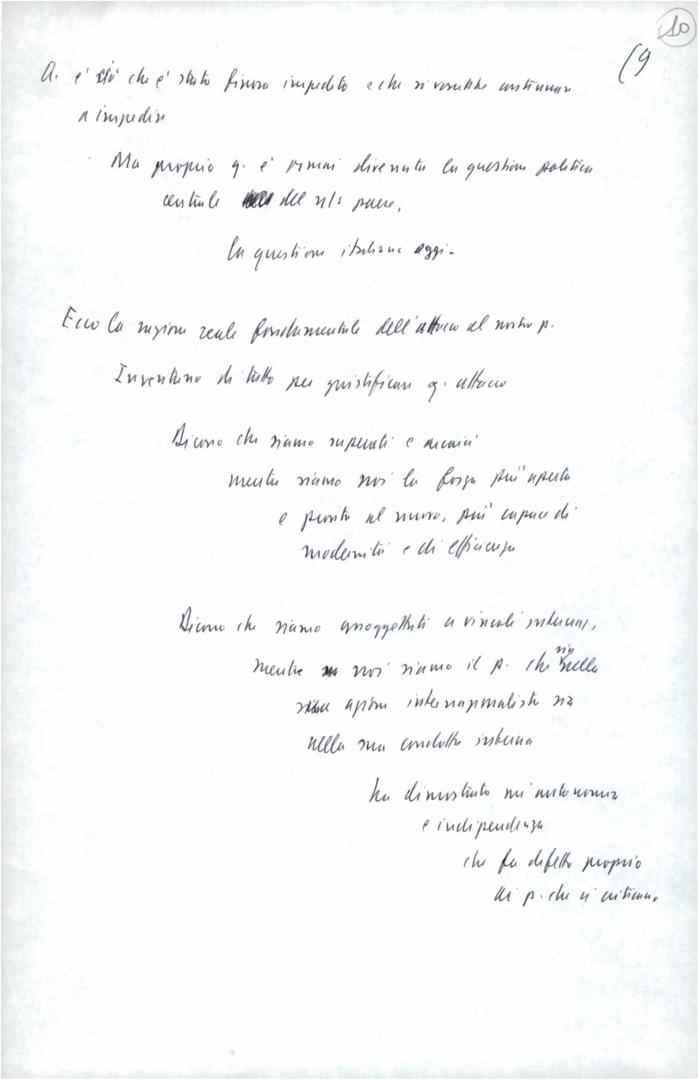 10
(9
Q. è ciò che è stato finora impedito e che si vorrebbe continuare
a impedire
Ma proprio q. è ormai divenuta la questione politica
centrale del n/s paese,
la questione italiana oggi.
Ecco la ragione reale fondamentale dell'attacco al nostro p.
Inventano di tutto per giustificare q. attacco
Dicono che siamo superati e arcaici
mentre siamo noi la forza più aperta
e pronta al nuovo, più capace di
modernità e di efficienza
Dicono che siamo assoggettati a vincoli esterni,
mentre noi siamo il p. che sia nella
sua azione internazionalista sia
nella sua condotta interna
ha dimostrato un'autonomia
e indipendenza
che fa difetto proprio
ai p. che ci criticano